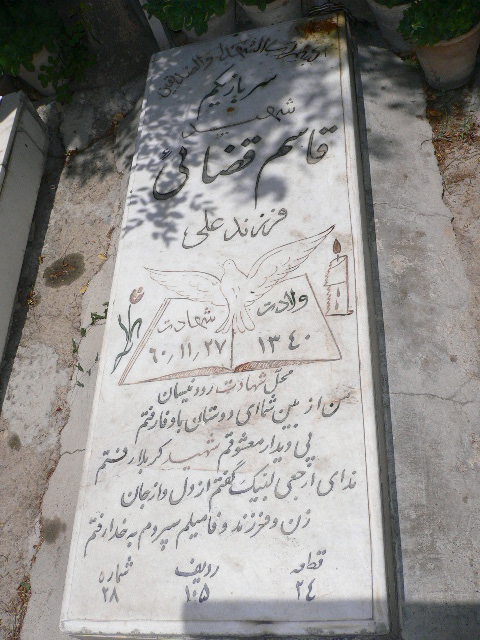 بسم رب الشهداء والصدیقین
سرباز یکم
شهید
قاسم قضائی
فرزند علی
ولادت شهادت
۱۳۴۰ ۶۰/۱۱/۲۷
محل شهادت رودنیسان
من از بین شما ای دوستان با وفا رفتم
پی دیدار معشوقم شهید کربلا رفتم
ندای ارجعی لبیک گفتم از دل و از جان
زن و فرزند و فامیلم سپردم به خدا رفتم
قطعه ردیف شماره
۲۴ ۱۰۵ ۲۸